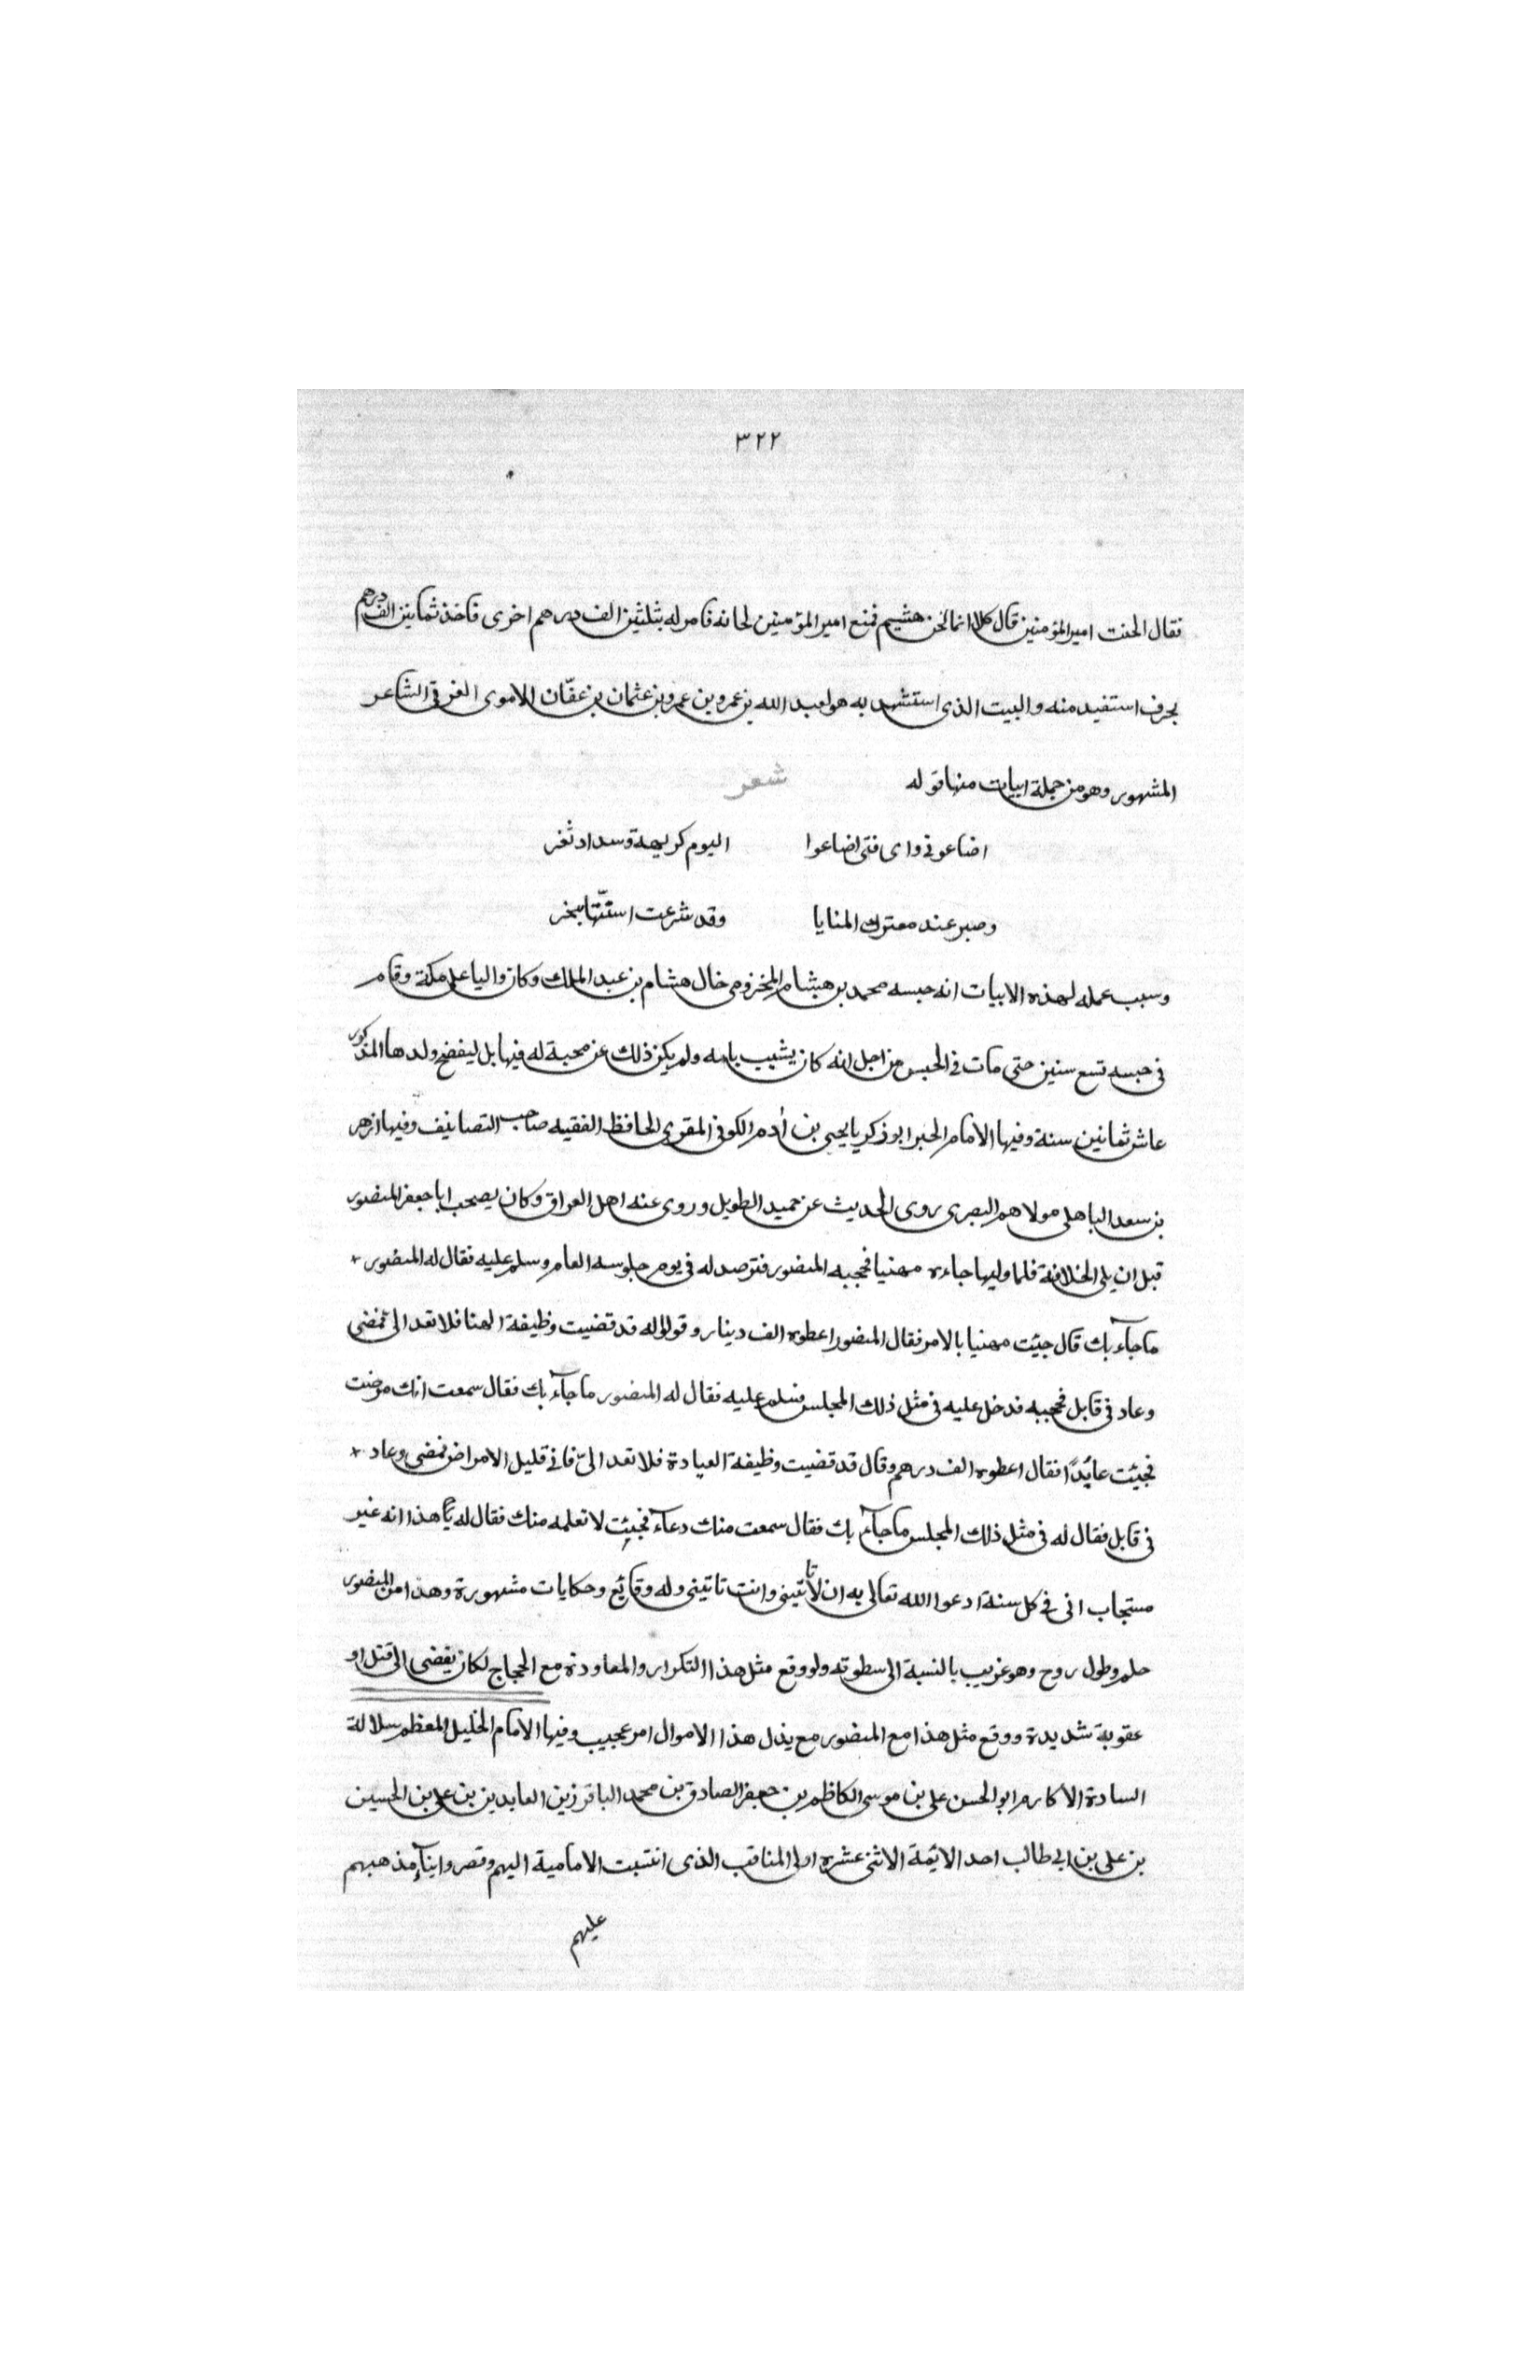 ٣٢٢
فقال الحنت امير المؤمنين قال كلا انما لحن هشيم فمنع امير المؤمنين لحانه فامر له بثلثين الف درهم اخرى فاخذ ثمانين الف درهم
بحرف استفيد منه والبيت الذى استشهد به هو لعبد الله بن عمرو بن عمرو بن عثمان بن عفّان الاموى العرجى الشاعر
المشهور وهو من جملة ابيات منها قوله شعر
اضاعونى واى فتى اضاعوا اليوم كريهة وسداد ثغر
وصبر عند معترك المنايا وقد شرعت اسنّتها بنحر
وسبب عمله لهذه الابيات انه حبسه محمد بن هشام المخزومى خال هشام بن عبد الملك وكان واليا على مكة وقام
فى حبسه تسع سنين حتى مات فى الحبس من اجل انه كان يشبب بامه ولم يكن ذلك عن محبة له فيها بل ليفضح ولدها المذكور
عاش ثمانين سنة وفيها الامام الحبر ابو زكريا يحيى بن أدم الكوفى المقرى الحافظ الفقيه صاحب التصانيف وفيها ازهر
بن سعد الباهلى مولاهم البصرى روى الحديث عن حميد الطويل وروى عنه اهل العراق وكان يصحب ابا جعفر المنصور
قبل ان يلى الخلافة فلما وليها جاءه مهنيا فحجبه المنصور فترصد له فى يوم جلوسه العام وسلم عليه فقال له المنصور
ما جآء بك قال جيئت مهنيا بالامر فقال المنصور اعطوه الف دينار وقولوا له قد قضيت وظيفة الهنا فلا تعد الى فمضى
وعاد فى قابل فحجبه فدخل عليه فى مثل ذلك المجلس فسلم عليه فقال له المنصور ما جآء بك فقال سمعت انك مرضت
فجيئت عايدًا فقال اعطوه الف درهم وقال قد قضيت وظيفة العيادة فلا تعد الىّ فانى قليل الامراض فمضى وعاد
فى قابل فقال له فى مثل ذلك المجلس ما جآء بك فقال سمعت منك دعآء فجيئت لاتعلمه منك فقال له يا هذا انه غير
مستجاب انى فى كل سنة ادعوا الله تعالى به ان لا تأتينى وانت تاتينى وله وقايع وحكايات مشهورة وهذا من المنصور
حلم وطول روح وهو غريب بالنسبة الى سطوته ولو وقع مثل هذا التكرار والمعاودة مع الحجاج لكان يفضى الى قتل او
عقوبة شديدة ووقع مثل هذا مع المنصور مع بذل هذا الاموال امر عجيب وفيها الامام الجليل المعظم سلالة
السادة الاكارم ابو الحسن على بن موسى الكاظم بن جعفر الصادق بن محمد الباقر زين العابدين بن على بن الحسين
بن على بن ابى طالب احد الايمة الاثنى عشره اولى المناقب الذى انتسبت الامامية اليهم وقصروا بنآء مذهبهم
عليهم